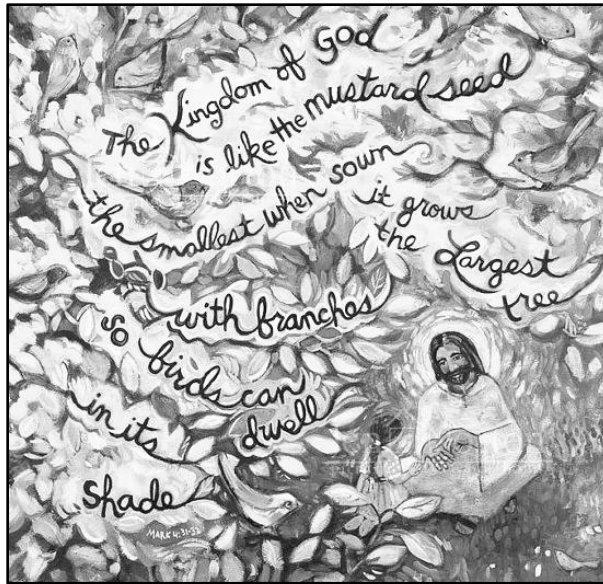 The Kingdom of God
is like the mustard seed
the smallest when sown
it grows
the Largest
tree
with branches
so birds can
dwell
in its
shade
MARK 4:31-32